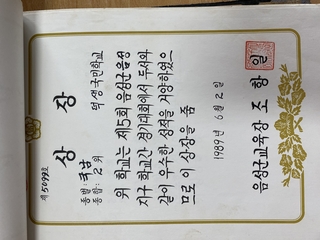 제5099호
상장
종별: 국남
종합: 2위
덕생국민학교
위 학교는 제5회 음성군음성
지구 학교간 경기대회에서 두서와
같이 우수한 성적을 거양하였으
므로 이 상장을 줌
1989년 6월 2일
음성군교육장 조항